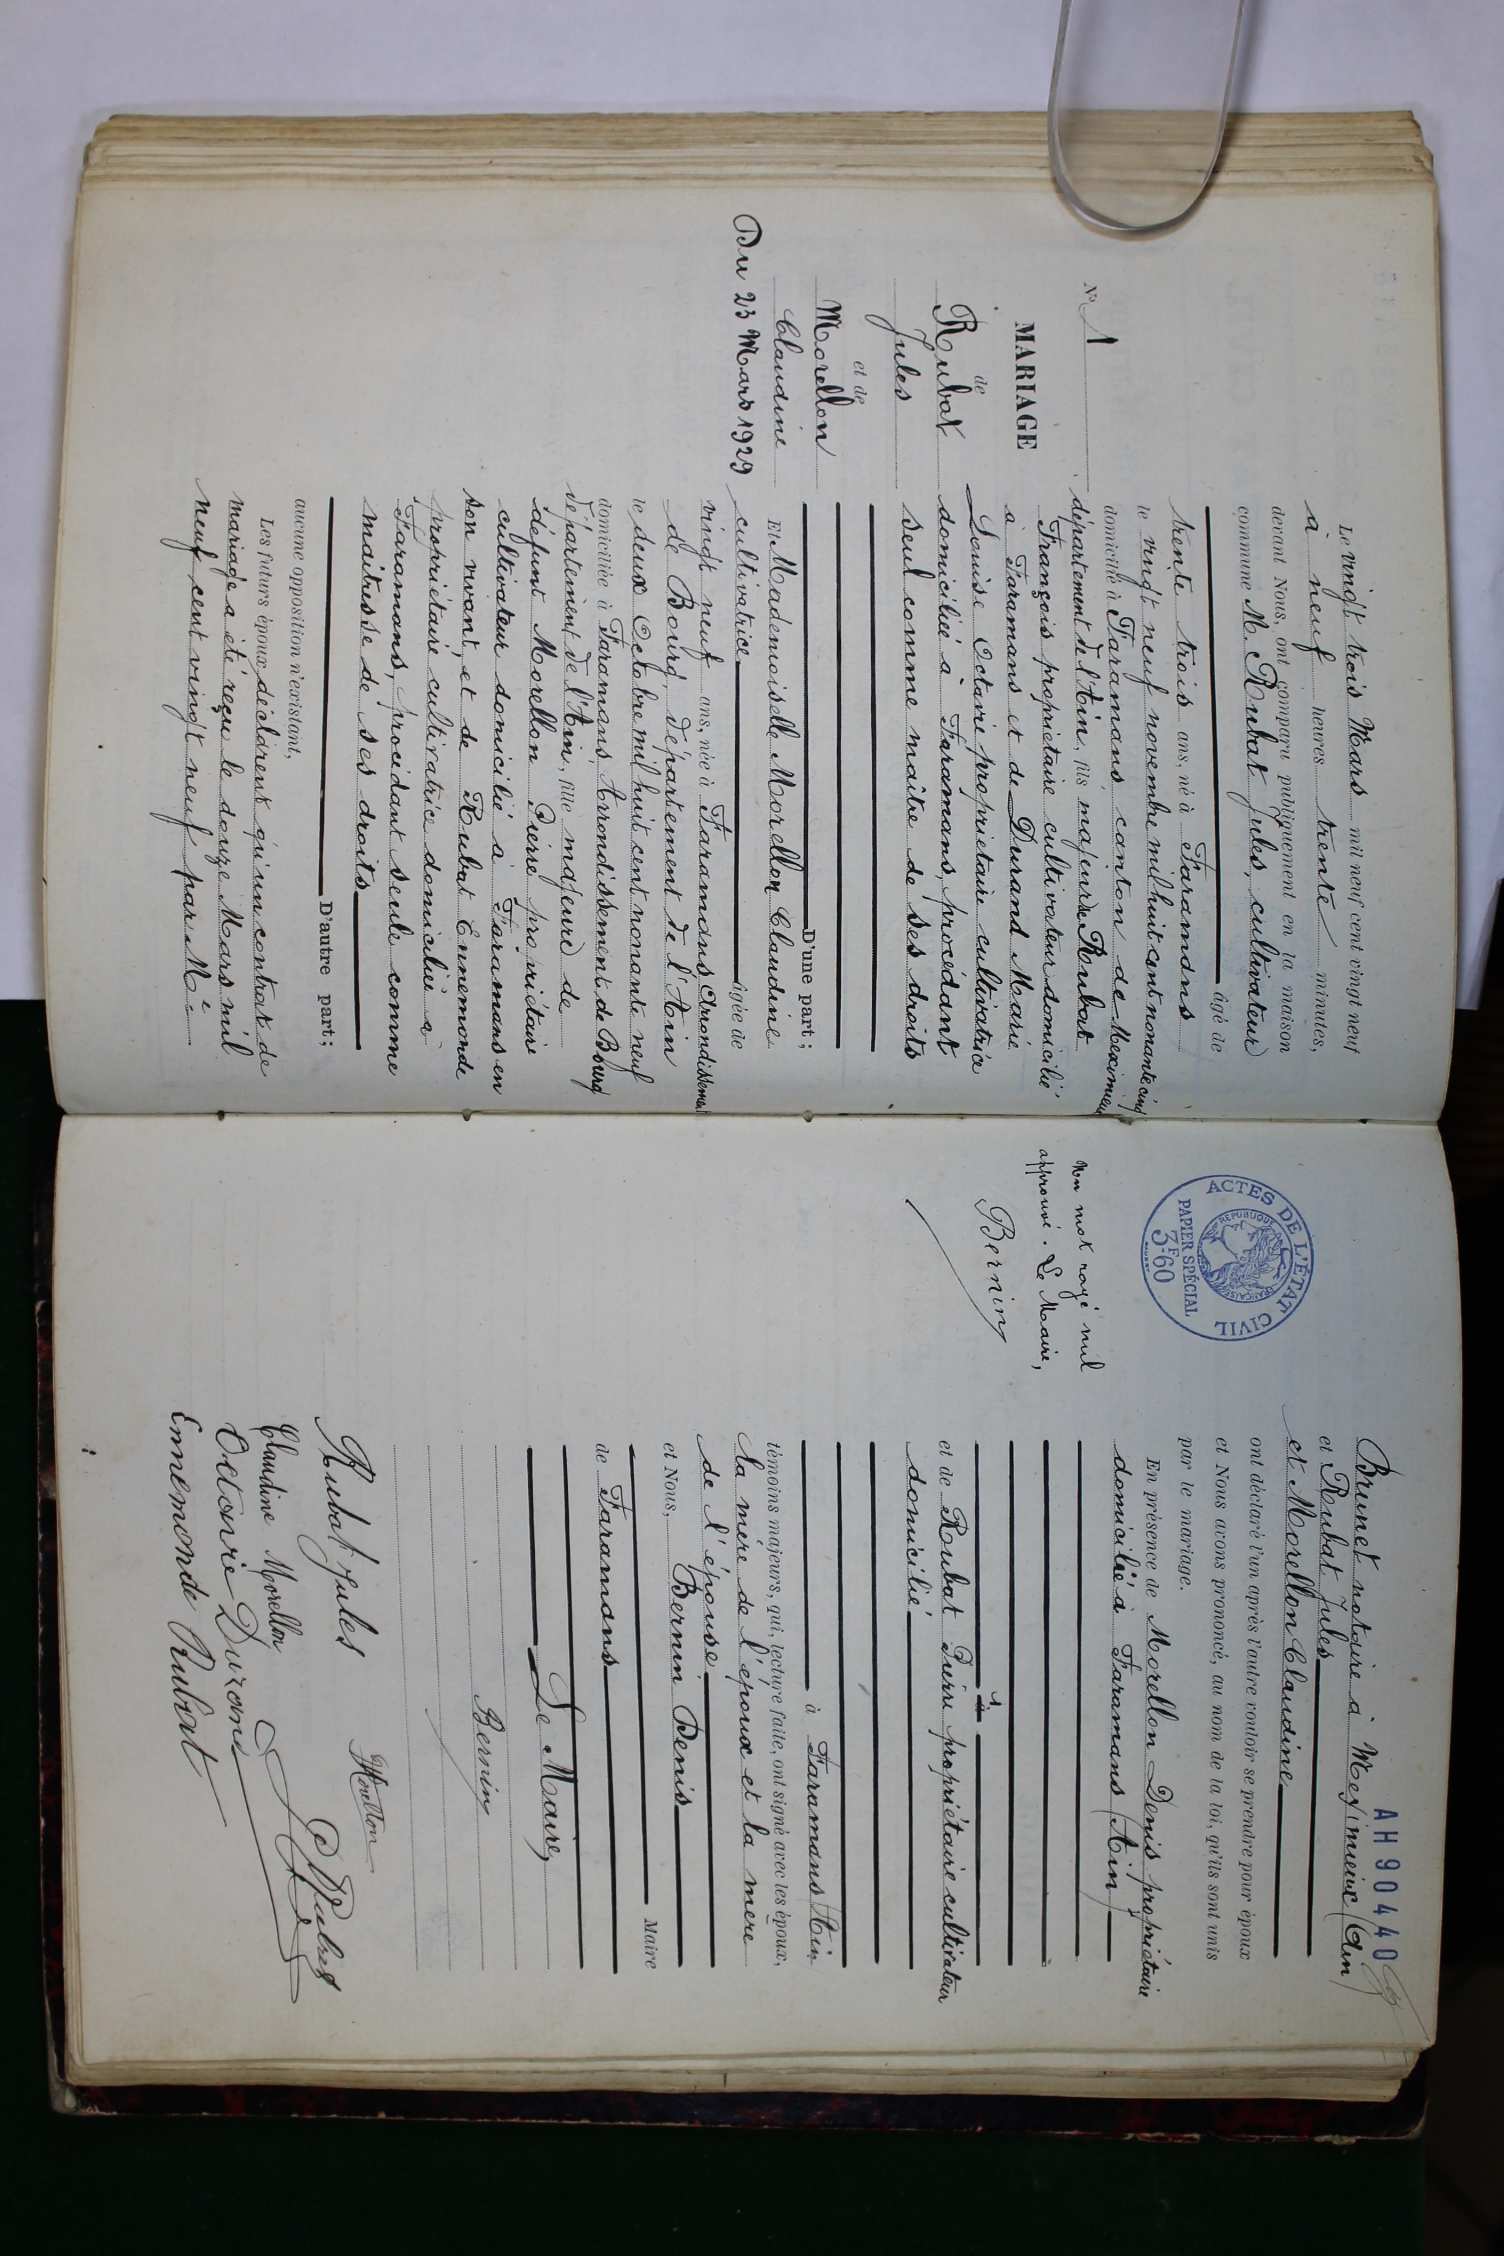 N° 1
MARIAGE
de
Rubat
Jules
et de
Morellon
Claudine
Du 23 Mars 1929
Le vingt trois Mars mil neuf cent vingt neuf
à neuf heures trente minutes,
devant Nous, ont comparu publiquement en la maison
commune M. Rubat Jules, cultivateur
âgé de
trente trois ans, né à Faramans
le vingt neuf novembre mil huit cent nonante cinq
domicilié à Faramans canton de Meximieux
département de l'Ain, fils majeur de Rubat
François propriétaire cultivateur domicilié
à Faramans et de Durand Marie
Louise Octavie propriétaire cultivatrice
domiciliée à Faramans, procédant
seul comme maître de ses droits
D'une part;
Et Mademoiselle Morellon Claudine
cultivatrice âgée de
vingt neuf ans, née à Faramans Arrondissement
de Bourg, département de l'Ain
le deux Octobre mil huit cent nonante neuf
domiciliée à Faramans Arrondissement de Bourg
département de l'Ain, fille majeure de
défunt Morellon Pierre propriétaire
cultivateur domicilié à Faramans en
son vivant, et de Rubat Ennemonde
propriétaire cultivatrice domiciliée à
Faramans, procédant seule comme
maitresse de ses droits
D'autre part;
aucune opposition n'existant,
Les futurs époux déclarent qu'un contrat de
mariage a été reçu le douze Mars mil
neuf cent vingt neuf par Me
AH90440
ACTES DE L'ÉTAT CIVIL
RÉPUBLIQUE FRANÇAISE
PAPIER SPÉCIAL
3F60
Un mot rayé nul
approuvé. Le Maire,
Bernin
Brunet notaire à Meximieux (Ain)
et Rubat Jules
et Morellon Claudine
ont déclaré l'un après l'autre vouloir se prendre pour époux
et Nous avons prononcé, au nom de la loi, qu'ils sont unis
par le mariage.
En présence de Morellon Denis propriétaire
domicilié à Faramans (Ain)
et de Rubat Pierre propriétaire cultivateur
domicilié
à Faramans Ain
témoins majeurs, qui, lecture faite, ont signé avec les époux,
la mère de l'époux et la mère
de l'épouse
et Nous, Bernin Denis
Maire
de Faramans
Le Maire,
Bernin
Rubat Jules
Morellon
Claudine Morellon
Rubat
Octavie Durand
Ennemonde Rubat